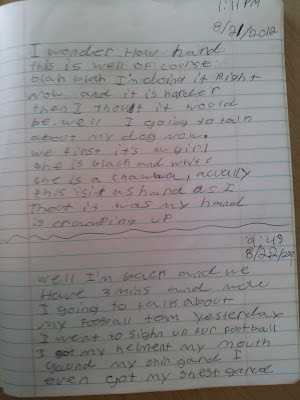 1:11 PM
8/21/2012
I wonder How hard
this is well of course
blah blah I'm doing it Right
now and it is harder
then I thout it would
be. well I going to taln
about my dog now.
we first it's a girl
she is black and white
she is a chawwa, acually
this isint as hard as I
Thout it was my hand
is cramping up
9:49
8/22/20
Well I'm back and we
Have 3 mins and now
I going to talk about
my football tom yesterday
I went to Sighn up for football
I got my helment my mouth
gaurd my shin gard I
even got my shest garde